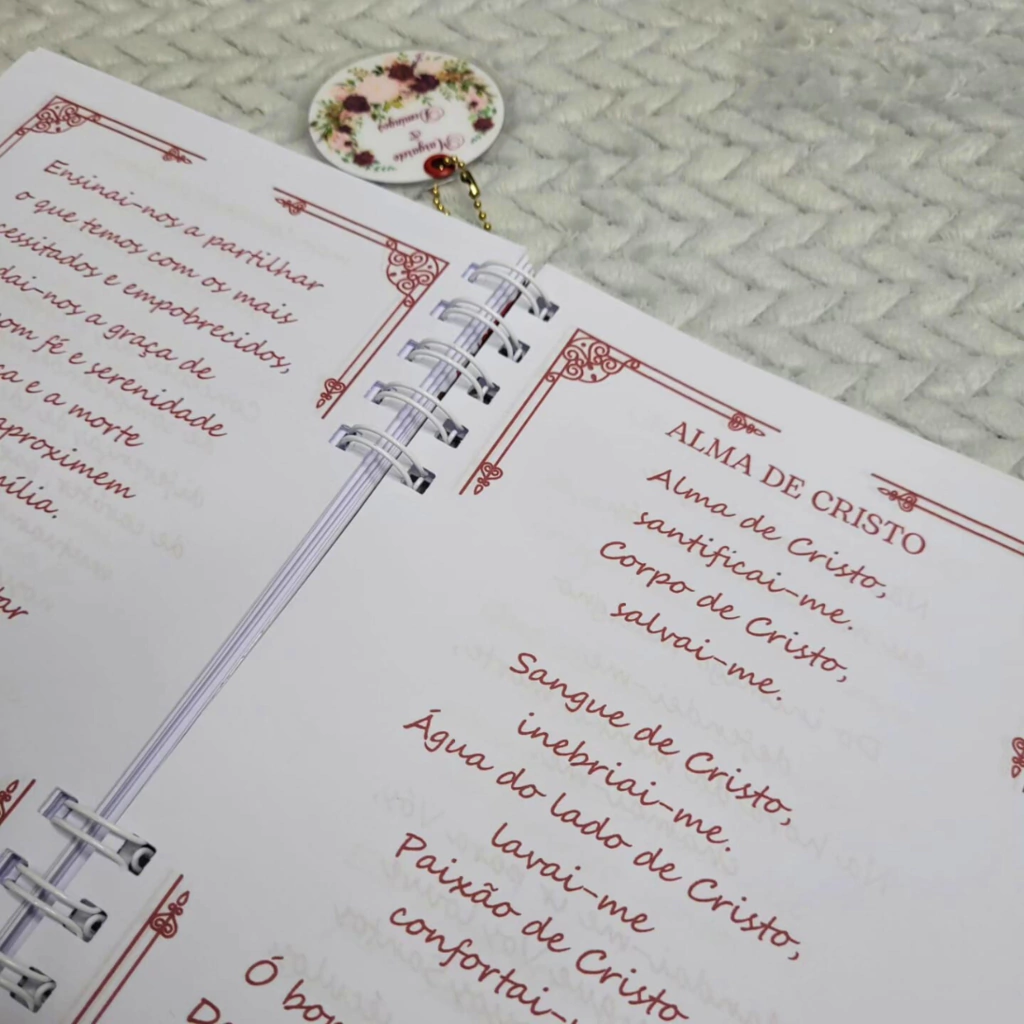 Margarete
&
Domingos
Ensinai-nos a partilhar
o que temos com os mais
cessitados e empobrecidos,
dai-nos a graça de
om fé e serenidade
ça e a morte
aproximem
mília.
ALMA DE CRISTO
Alma de Cristo,
santificai-me.
Corpo de Cristo,
salvai-me.
Sangue de Cristo,
inebriai-me.
Água do lado de Cristo,
lavai-me
Paixão de Cristo
confortai-
Ó bo